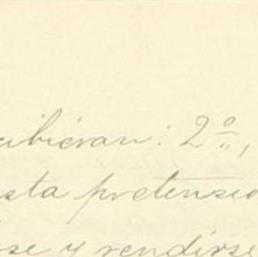 cibieran: 2º,
sta pretensio
se y rendirse